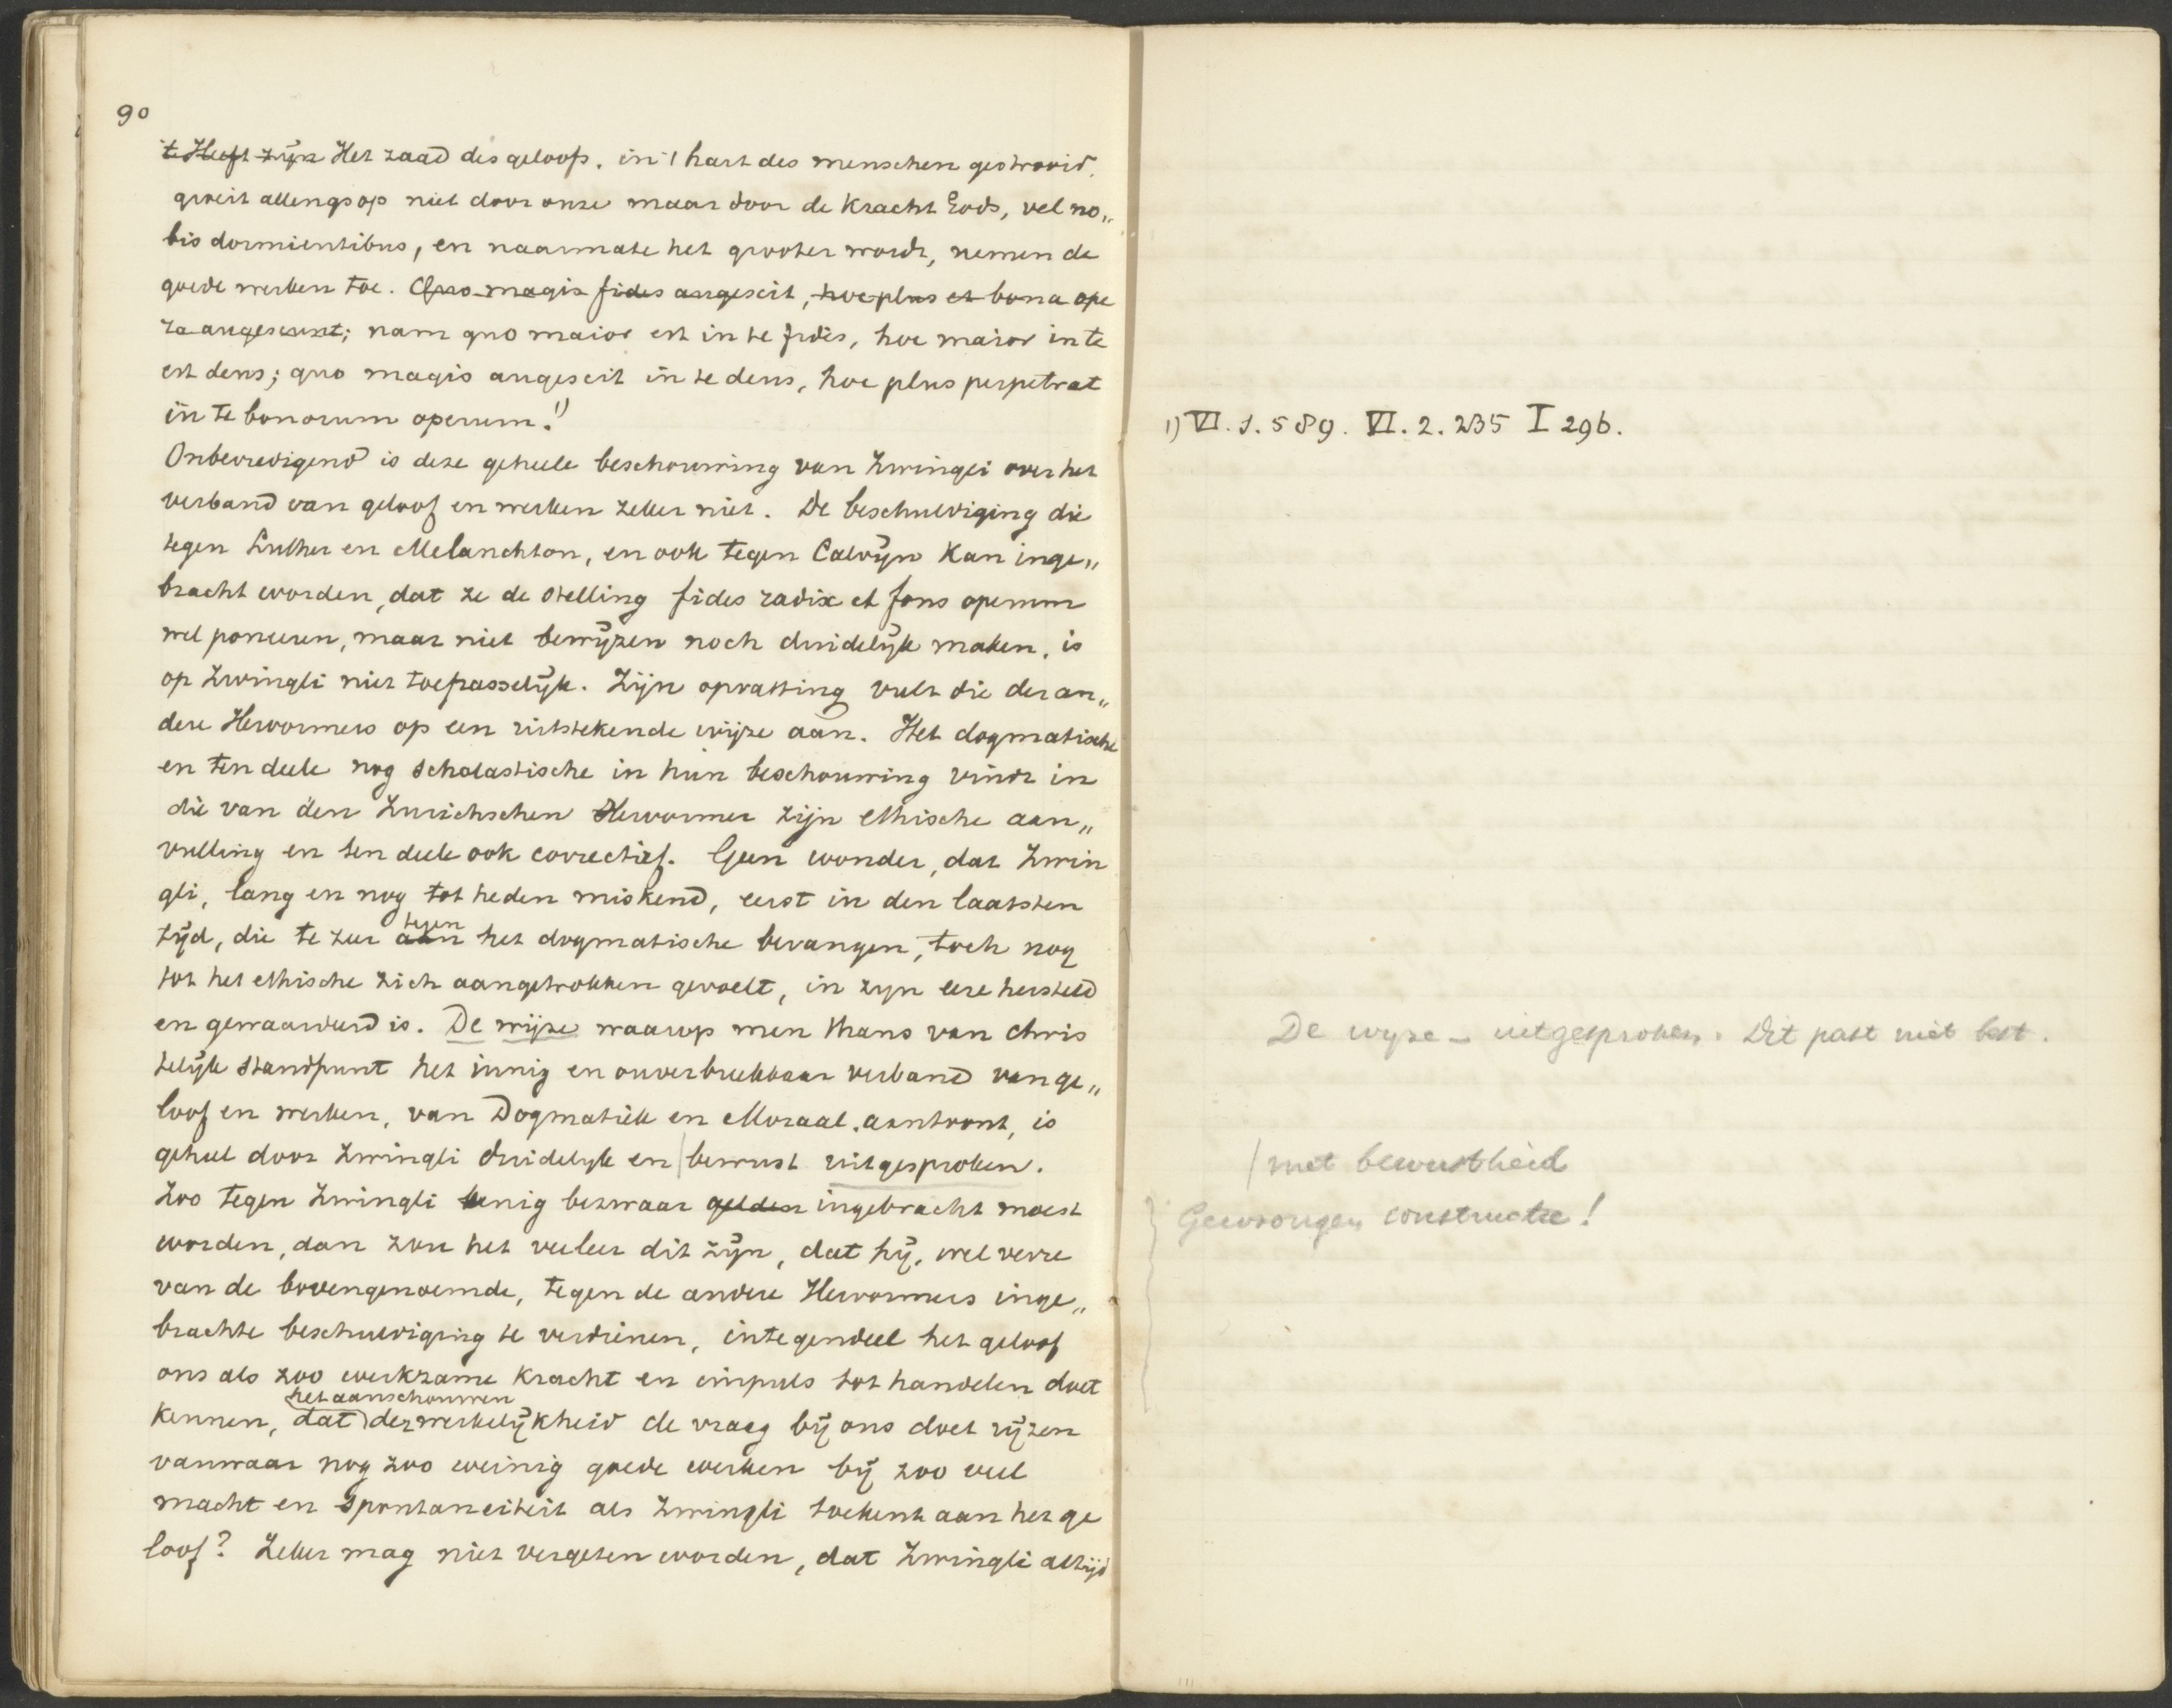 90
't Heeft zijn Het zaad des geloofs, in 't hart des menschen gestrooid,
groeit allengs op niet door onze maar door de Kracht Gods, vel no„
bis dormientibus, en naarmate het grooter wordt, nemen de
goede werken toe. Quo magis fides augescit, hoc plus et bona ope
ra augescunt; nam quo maior est in te fides, hoc maior in te
est deus; quo magis augescit in te deus, hoc plus perpetrat
in te bonorum operum. 1)
Onbevredigend is deze geheele beschouwing van Zwingli over het
verband van geloof en werken zeker niet. De beschuldiging die
tegen Luther en Melanchton, en ook tegen Calvijn kan inge„
bracht worden, dat ze de stelling fides radix et fons operum
wel poneeren, maar niet bewijzen noch duidelijk maken, is
op Zwingli niet toepasselijk. Zijn opvatting vult die der an„
dere Hervormers op een uitstekende wijze aan. Het dogmatische
en ten deele nog scholastische in hun beschouwing vindt in
die van den Zurichschen Hervormer zijn ethische aan„
vulling en ten deele ook correctief. Geen wonder, dat Zwin
gli, lang en nog tot heden miskend, eerst in den laatsten
tijd, die te zeer aan tegen het dogmatische bevangen, toch nog
tot het ethische zich aangetrokken gevoelt, in zijn eere hersteld
en gewaardeerd is. De wijze waarop men thans van chris
telijk standpunt het innig en onverbreekbaar verband van ge„
loof en werken, van Dogmatiek en Moraal, aantoont, is
geheel door Zwingli duidelijk en | bewust uitgesproken.
Zoo tegen Zwingli eenig bezwaar gelden ingebracht moest
worden, dan zou het veeleer dit zijn, dat hij, wel verre
van de bovengenoemde, tegen de andere Hervormers inge„
brachte beschuldiging te verdienen, integendeel het geloof
ons als zoo werkzame kracht en impuls tot handelen doet
het aanschouwen
kennen, dat der werkelijkheid de vraag bij ons doet rijzen
vanwaar nog zoo weinig goede werken bij zoo veel
macht en spontaneiteit als Zwingli toekent aan het ge
loof? Zeker mag niet vergeten worden, dat Zwingli altijd
1) VI. 1. 589. VI. 2. 235 I 296.
De wyze – uitgesproken. Dit past niet best.
| met bewustheid
Gewrongen constructie!